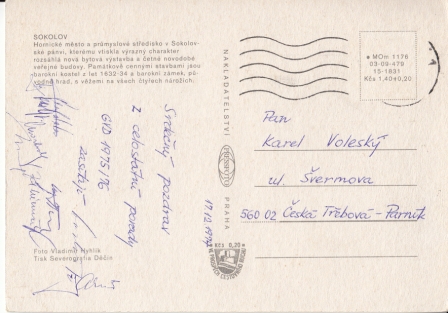 SOKOLOV
Hornické město a průmyslové středisko v Sokolov-
ské pánvi, kterému vtiskla výrazný charakter
rozsáhlá nová bytová výstavba a četné novodobé
veřejné budovy. Památkově cennými stavbami jsou
barokní kostel z let 1632-34 a barokní zámek, pů-
vodně hrad, s věžami na všech čtyřech nárožích.
Srdečný pozdrav
z celostátní porady
GJD 1975/76
zasílají
17.12.
Foto Vladimír Hyhlík
Tisk Severografia Děčín
NAKLADATELSTVÍ
PRESSFOTO
PRAHA
Kčs 0,20
MOm 1176
03-09-479
15-1831
Kčs 1,40+0,20
Pan
Karel Voleský
ul. Švermova
560 02 Česká Třebová - Parník